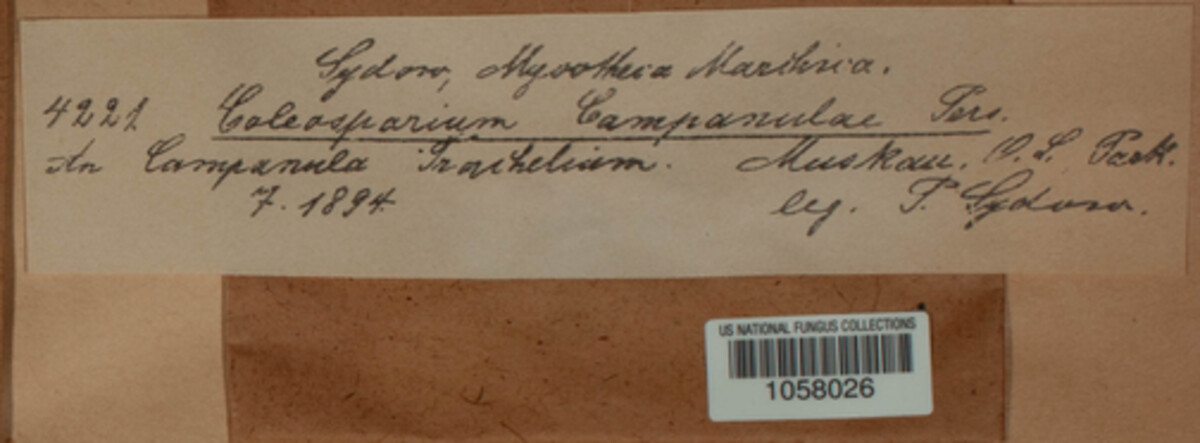 Sydow, Mycotheca Marchica.
4221 Coleosporium Campanulae Pers.
An Campanula Trachelium. Muskau, O. L. Park.
7. 1894. leg. P. Sydow.
US NATIONAL FUNGUS COLLECTIONS
1058026